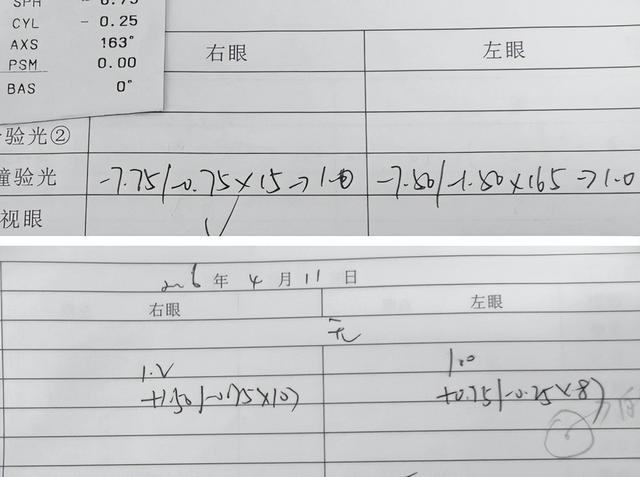 SPH - 0.75
CYL - 0.25
AXS 163°
PSM 0.00
BAS 0°
右眼 左眼
验光②
瞳验光 -7.75/-0.75×15→1.0 -7.50/-1.50×165→1.0
视眼
年 4 月 11 日
右眼 左眼
无
1.0
+0.75/-0.25×8